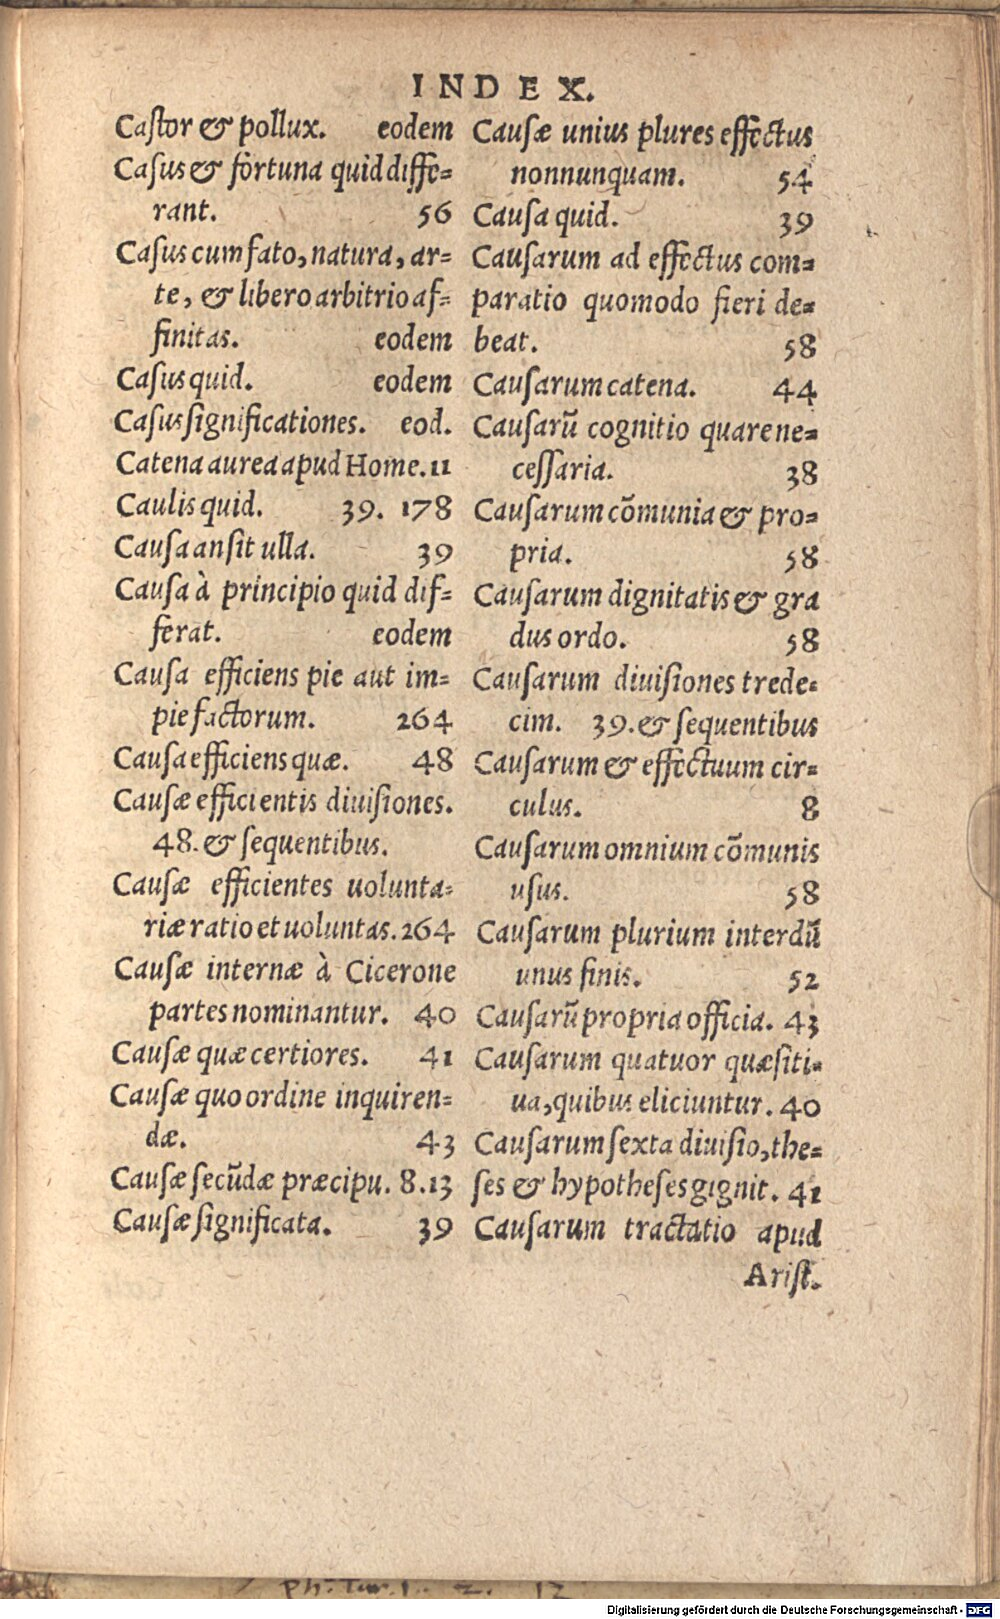 INDEX.
Castor & pollux. eodem
Casus & fortuna quid diffe=
rant. 56
Casus cum fato, natura, ar=
te, & libero arbitrio af=
finitas. eodem
Casus quid. eodem
Casus significationes. eod.
Catena aurea apud Home. 11
Caulis quid. 39. 178
Causa an sit ulla. 39
Causa à principio quid dif=
ferat. eodem
Causa efficiens pie aut im=
pie factorum. 264
Causa efficiens quæ. 48
Causæ efficientis diuisiones.
48. & sequentibus.
Causæ efficientes uolunta=
riæ ratio et uoluntas. 264
Causæ internæ à Cicerone
partes nominantur. 40
Causæ quæ certiores. 41
Causæ quo ordine inquiren=
dæ. 43
Causæ secūdæ præcipu. 8.13
Causæ significata. 39
Causæ unius plures effectus
nonnunquam. 54
Causa quid. 39
Causarum ad effectus com=
paratio quomodo fieri de=
beat. 58
Causarum catena. 44
Causarū cognitio quare ne=
cessaria. 38
Causarum cōmunia & pro=
pria. 58
Causarum dignitatis & gra
dus ordo. 58
Causarum diuisiones trede=
cim. 39. & sequentibus
Causarum & effectuum cir=
culus. 8
Causarum omnium cōmunis
usus. 58
Causarum plurium interdū
unus finis. 52
Causarū propria officia. 43
Causarum quatuor quæsiti=
ua, quibus eliciuntur. 40
Causarum sexta diuisio, the=
ses & hypotheses gignit. 41
Causarum tractatio apud
Arist.
Digitalisierung gefördert durch die Deutsche Forschungsgemeinschaft - DFG